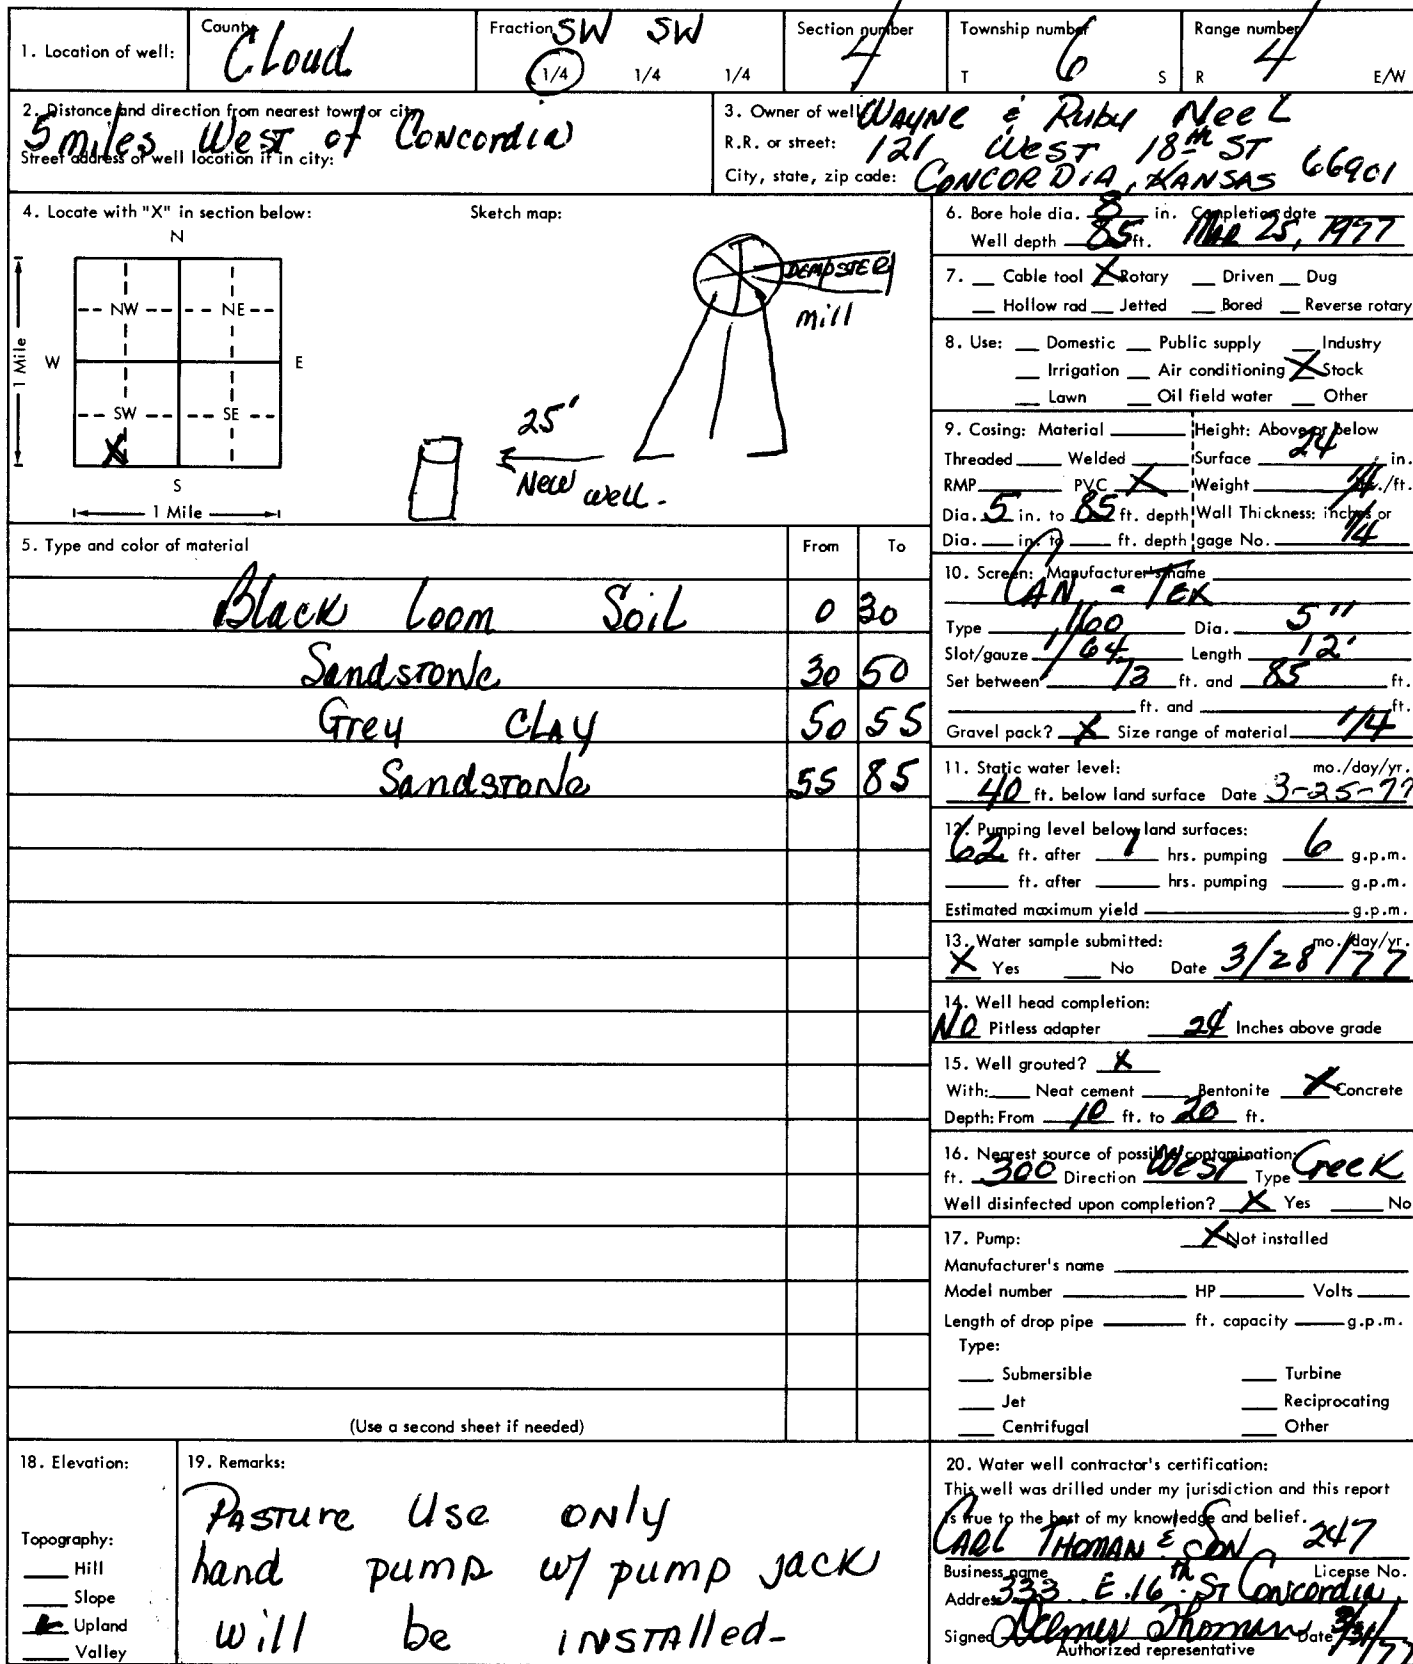 1. Location of well: County Cloud Fraction SW SW 1/4 1/4 1/4 Section number 4 Township number T 6 S Range number R 4 E/W
2. Distance and direction from nearest town or city:
5 miles West of Concordia
Street address of well location if in city:
3. Owner of well: Wayne & Ruby Neel
R.R. or street: 121 West 18th St
City, state, zip code: Concordia, Kansas 66901
4. Locate with "X" in section below:
N
NW NE
W E
SW SE
X
S
1 Mile
1 Mile
Sketch map:
DEMPSTER
mill
25'
New well-
5. Type and color of material From To
Black Loom Soil 0 30
Sandstone 30 50
Grey Clay 50 55
Sandstone 55 85
(Use a second sheet if needed)
6. Bore hole dia. 8 in. Completion date
Well depth 85 ft. Mar 25, 1977
7. __ Cable tool X Rotary __ Driven __ Dug
__ Hollow rad __ Jetted __ Bored __ Reverse rotary
8. Use: __ Domestic __ Public supply __ Industry
__ Irrigation __ Air conditioning X Stock
__ Lawn __ Oil field water __ Other
9. Casing: Material ____ Height: Above or below
Threaded ____ Welded ____ Surface 24 in.
RMP ____ PVC X Weight ____ ./ft.
Dia. 5 in. to 85 ft. depth Wall Thickness: inches or
Dia. __ in. to __ ft. depth gage No. 1/4
10. Screen: Manufacturer's name
Can-Tex
Type 160 Dia. 5"
Slot/gauze 1/64 Length 12'
Set between 73 ft. and 85 ft.
____ ft. and ____ ft.
Gravel pack? X Size range of material 1/4
11. Static water level: mo./day/yr.
40 ft. below land surface Date 3-25-77
12. Pumping level below land surfaces:
62 ft. after 1 hrs. pumping 6 g.p.m.
____ ft. after ____ hrs. pumping ____ g.p.m.
Estimated maximum yield ____ g.p.m.
13. Water sample submitted: mo./day/yr.
X Yes __ No Date 3/28/77
14. Well head completion:
No Pitless adapter 24 Inches above grade
15. Well grouted? X
With: __ Neat cement __ Bentonite X Concrete
Depth: From 10 ft. to 20 ft.
16. Nearest source of possible contamination:
ft. 300 Direction West Type Creek
Well disinfected upon completion? X Yes __ No
17. Pump: X Not installed
Manufacturer's name ____
Model number ____ HP ____ Volts ____
Length of drop pipe ____ ft. capacity ____ g.p.m.
Type:
__ Submersible __ Turbine
__ Jet __ Reciprocating
__ Centrifugal __ Other
18. Elevation:
Topography:
__ Hill
__ Slope
X Upland
__ Valley
19. Remarks:
Pasture Use only
hand pump w/ pump jack
will be installed-
20. Water well contractor's certification:
This well was drilled under my jurisdiction and this report
is true to the best of my knowledge and belief.
Carl Thoman & Son 247
Business name License No.
Address 333 E. 16th St Concordia
Signed Delmer Thoman Date 3/31/77
Authorized representative